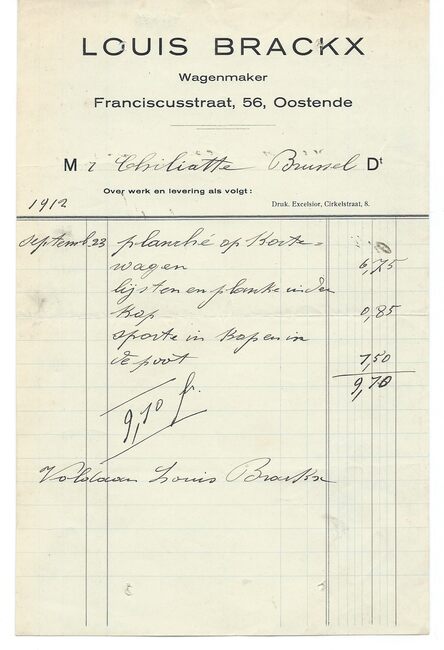 LOUIS BRACKX
Wagenmaker
Franciscusstraat, 56, Oostende
Mr Chiliatte Brussel Dt
Over werk en levering als volgt :
1912
Druk. Excelsior, Cirkelstraat, 8.
septemb 23 planché op Korte=
wagen 6,75
lijsten en planke in den
Kop 0,85
sporte in Kop en in
de poot 1,50
9,10
9,10 fr.
Voldaan Louis Brackx